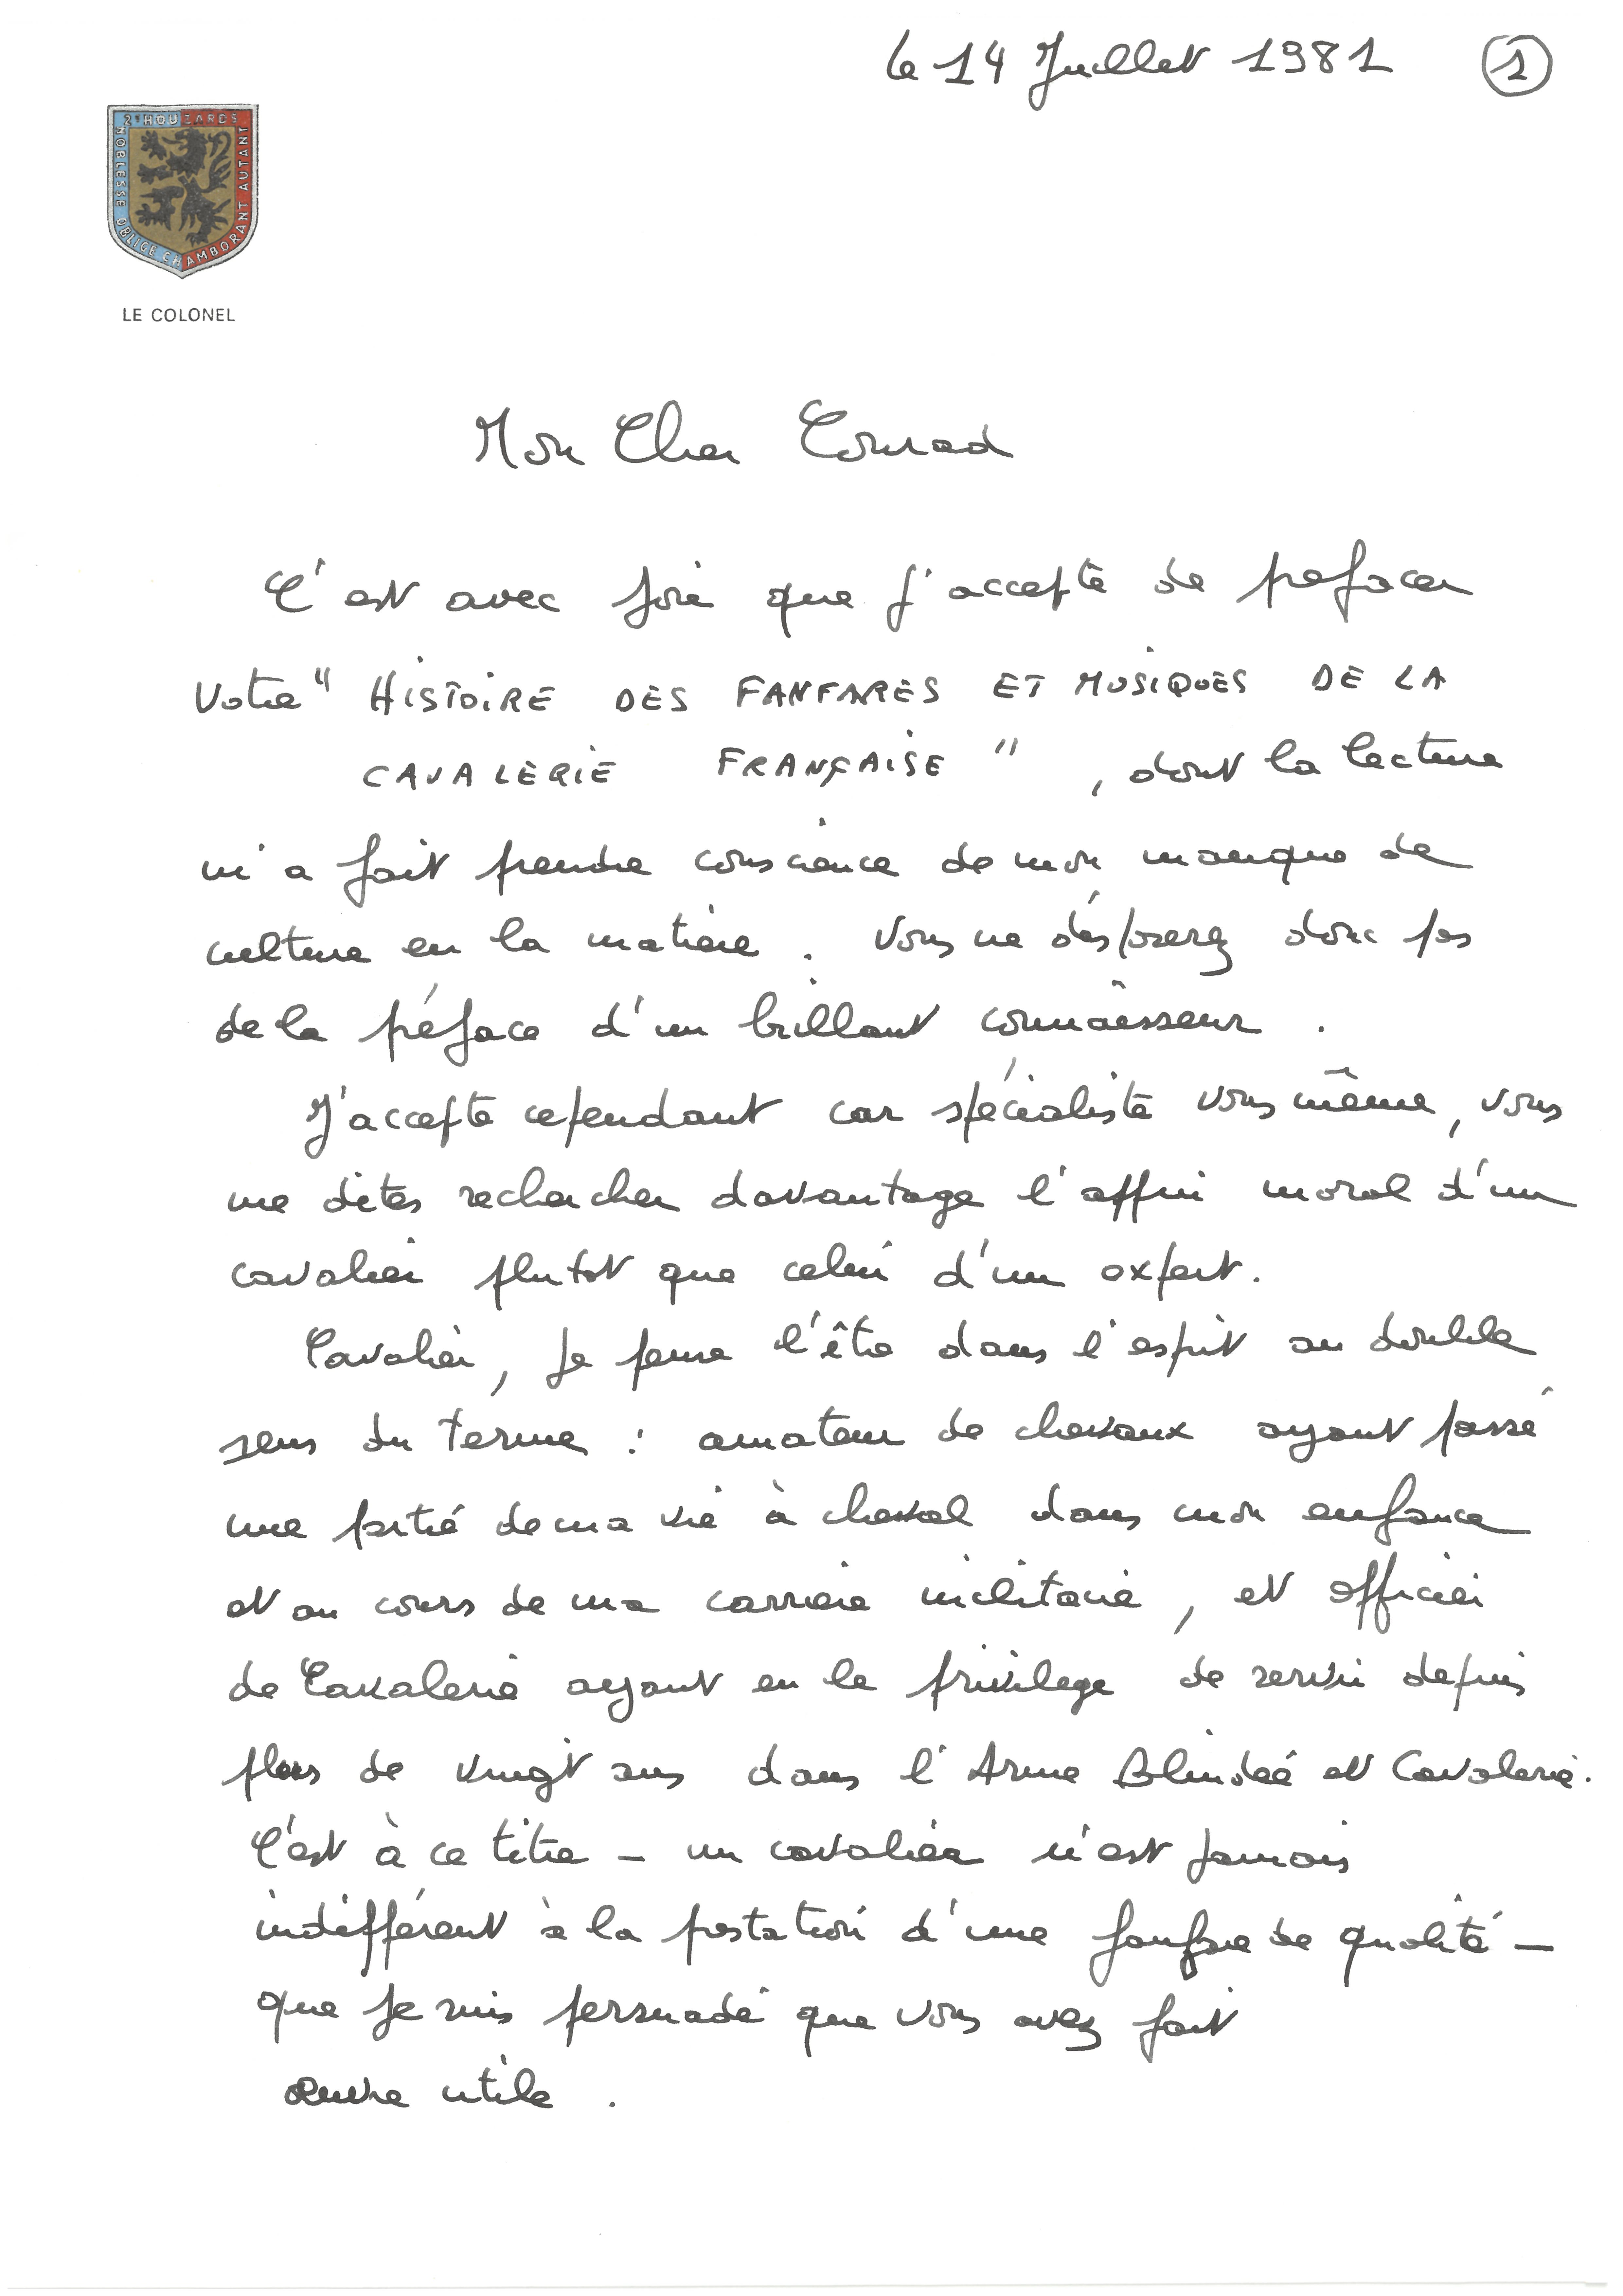 le 14 Juillet 1981 1
2e HOUZARDS
NOBLESSE OBLIGE CHAMBORANT AUTANT
LE COLONEL
Mon Cher Conrad
C'est avec joie que j'accepte de prefacer
votre " HISTOIRE DES FANFARES ET MUSIQUES DE LA
CAVALERIE FRANÇAISE ", dont la lecture
m'a fait prendre conscience de mon manque de
culture en la matière. Vous ne disposerez donc pas
de la préface d'un brillant connaîsseur.
J'accepte cependant car spécialiste vous même, vous
me dites rechercher davantage l'appui moral d'un
cavalier plutot que celui d'un expert.
Cavalier, je pense l'être dans l'esprit au double
sens du terme : amateur de chevaux ayant passé
une partie de ma vie à cheval dans mon enfance
et au cours de ma carriere militaire, et officier
de Cavalerie ayant eu le privilege de servir depuis
plus de vingt ans dans l'Arme Blindée et Cavalerie.
C'est à ce titre - un cavalier n'est jamais
indifférent à la prestation d'une fanfare de qualité -
que je suis persuadé que vous avez fait
œuvre utile.